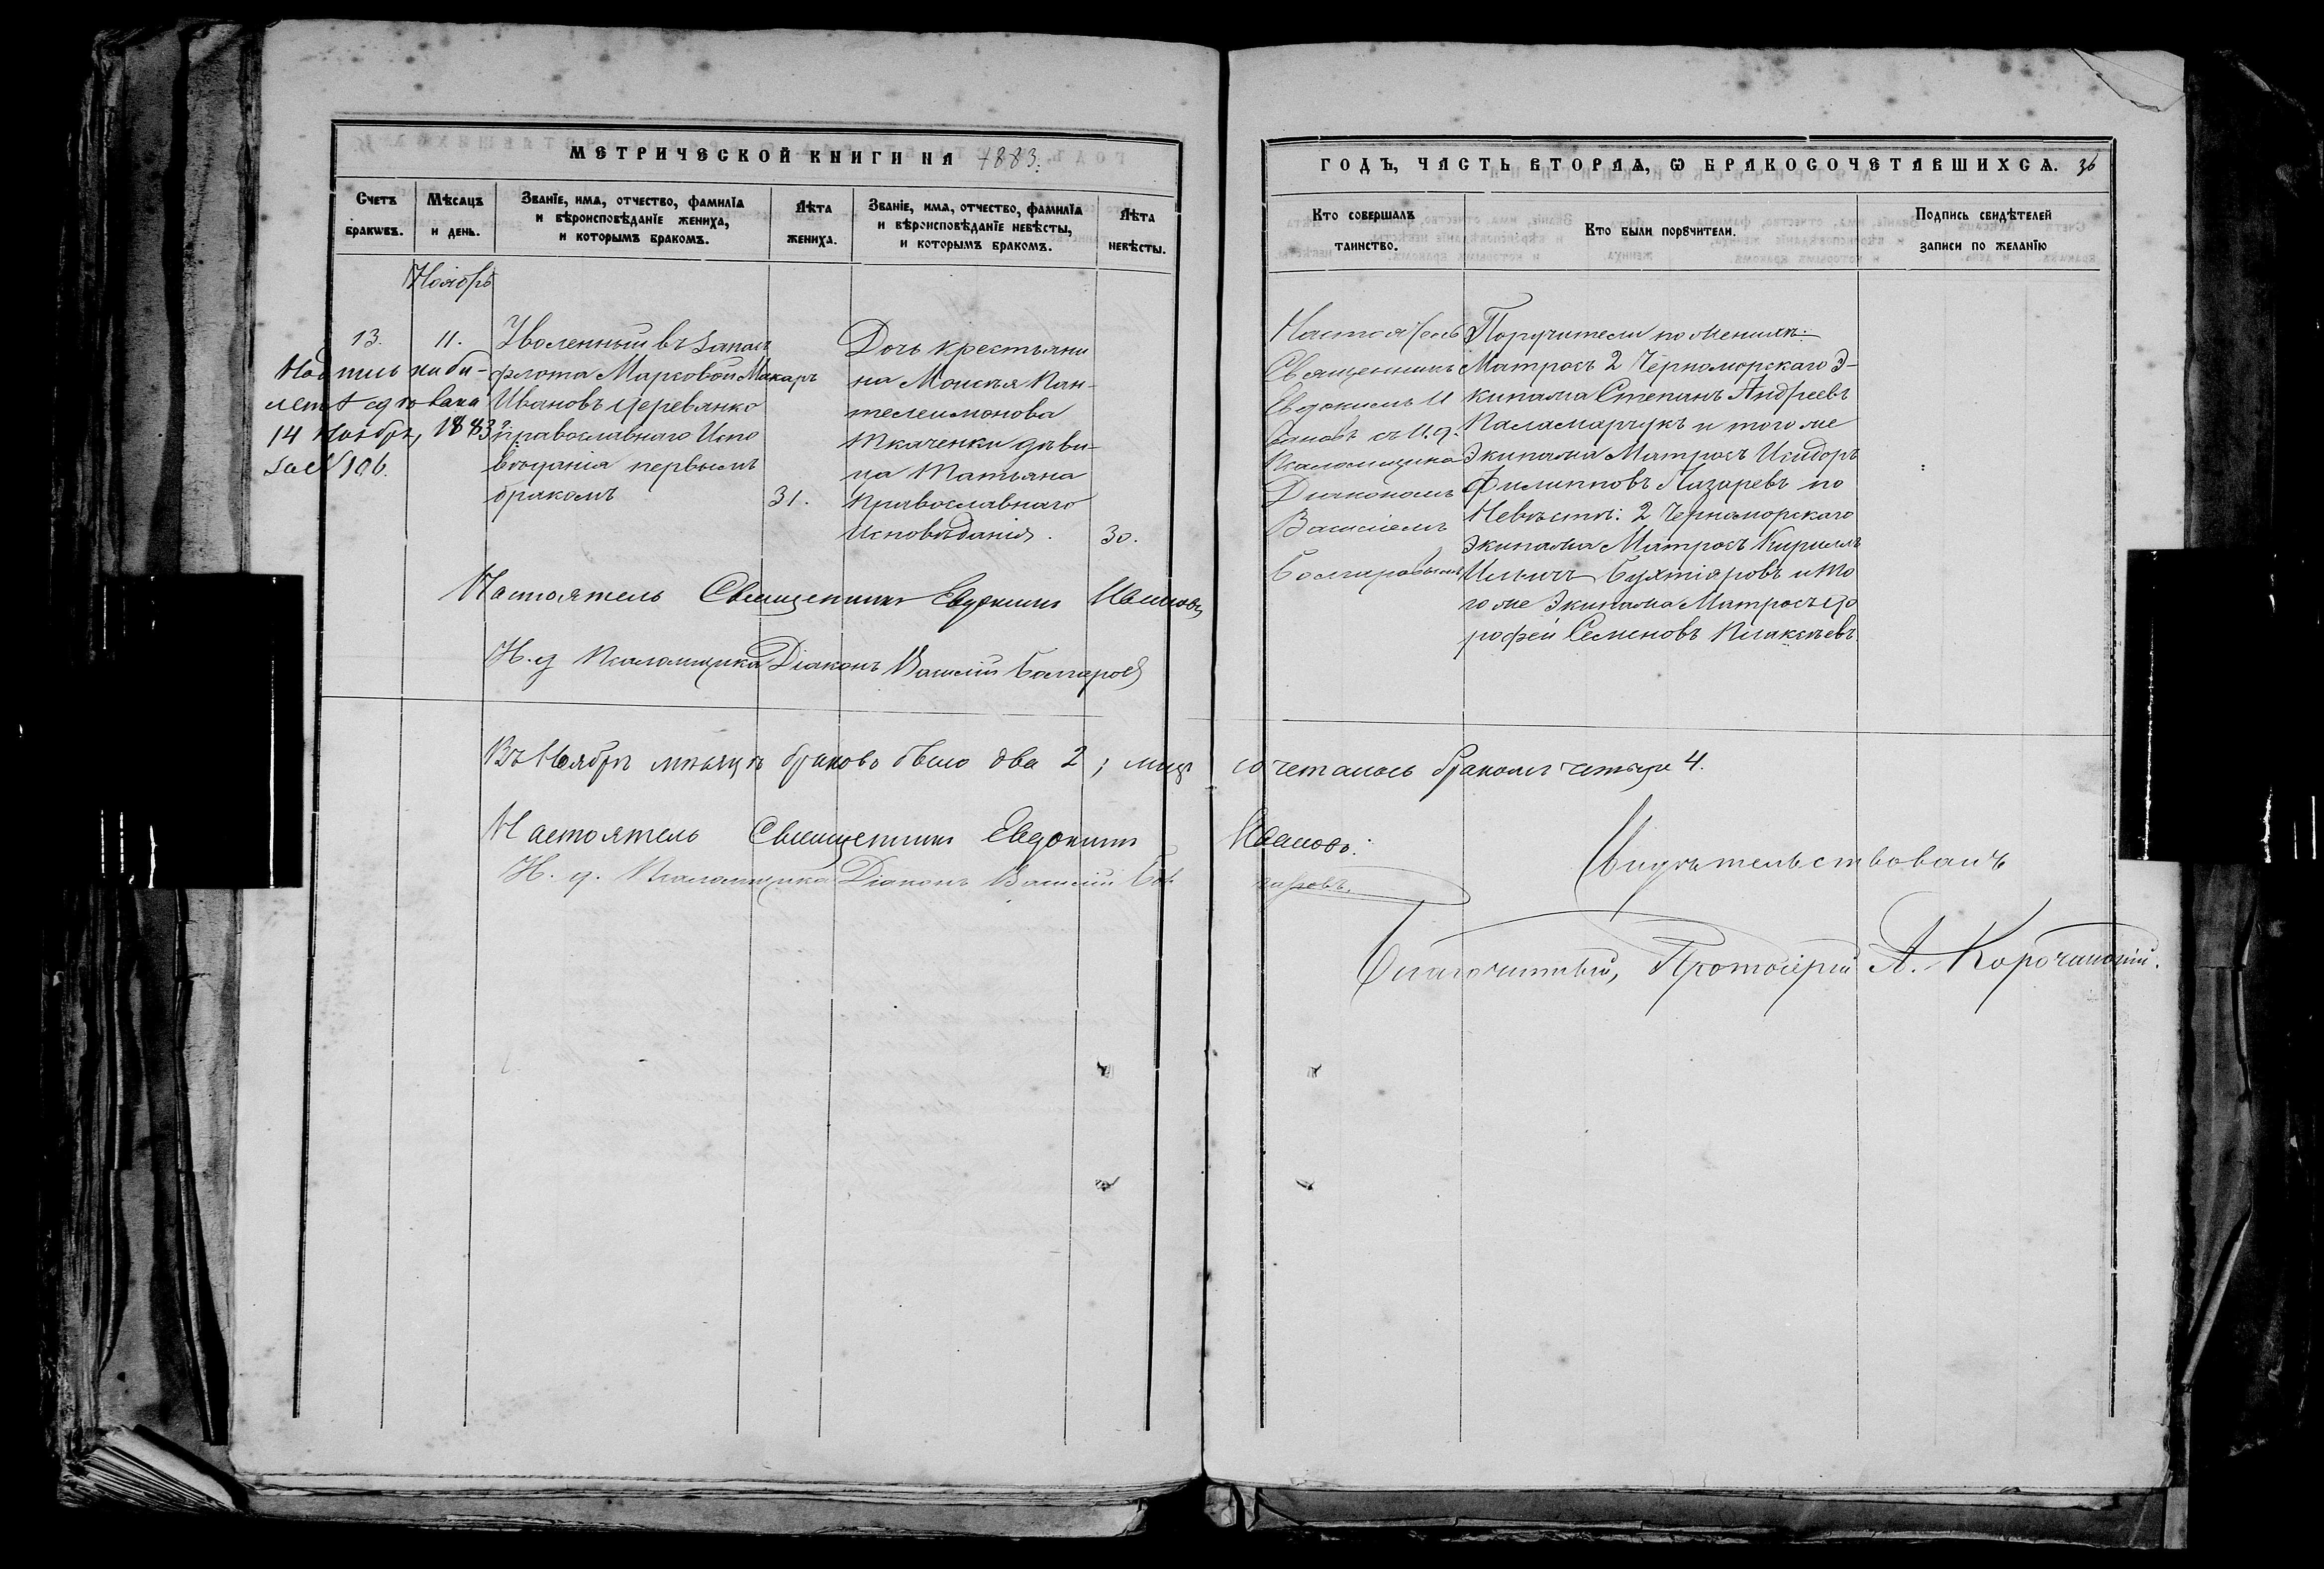 МЕТРИЧЕСКОЙ КНИГИ НА 1883.
Счетъ браквъ.
Мѣсяцъ и день.
Званіе, имя, отчество, фамилія и вѣроисповѣданіе жениха, и которымъ бракомъ.
Лѣта жениха.
Званіе, имя, отчество, фамилія и вѣроисповѣданіе невѣсты, и которымъ бракомъ.
Лѣта невѣсты.
Ноябрь
13.
11.
Надпись на би-
летѣ сдѣлана
14 Ноября, 1883 г.
за № 106.
Уволенный въ запасъ
флота Марсовой Макаръ
Ивановъ Деревянко
православнаго Испо
вѣданія первымъ
бракомъ
31.
Дочь крестьяни
на Моисея Пан-
телеимонова
Ткаченки дѣви-
ца Татьяна
Православнаго
Исповѣданія.
30.
Настоятель Священникъ Евдокимъ Ивановъ
И. д. Псаломщика Діаконъ Василій Болгаровъ
Въ Ноябрѣ мѣсяцѣ браковъ было два 2; лицъ
Настоятель Священникъ Евдокимъ
И. д. Псаломщика Діаконъ Василій Бол
ГОДЪ, ЧАСТЬ ВТОРАЯ, Ѡ БРАКОСОЧЕТАВШИХСЯ. 36
Кто совершалъ таинство.
Кто были порꙋчители.
Подпись свидѣтелей записи по желанію
Настоятель
Священникъ
Евдокимъ И
вановъ съ И. д.
Псаломщика
Діакономъ
Василіемъ
Болгаровымъ
Поручители по Женихѣ:
Матросъ 2 Черноморскаго Э-
кипажа Степанъ Андреевъ
Паламарчукъ и того же
Экипажа Матросъ Исидоръ
Филипповъ Лазаревъ по
Невѣстѣ: 2 Черноморскаго
Экипажа Матросъ Кириллъ
Ильичъ Бухтіяровъ и то
го же Экипажа Матросъ До
рофей Семеновъ
сочеталось бракомъ четыре 4.
Ивановъ.
гаровъ.
Свидѣтельствовалъ
Благочинный, Протоіерей А. Корочанскій.